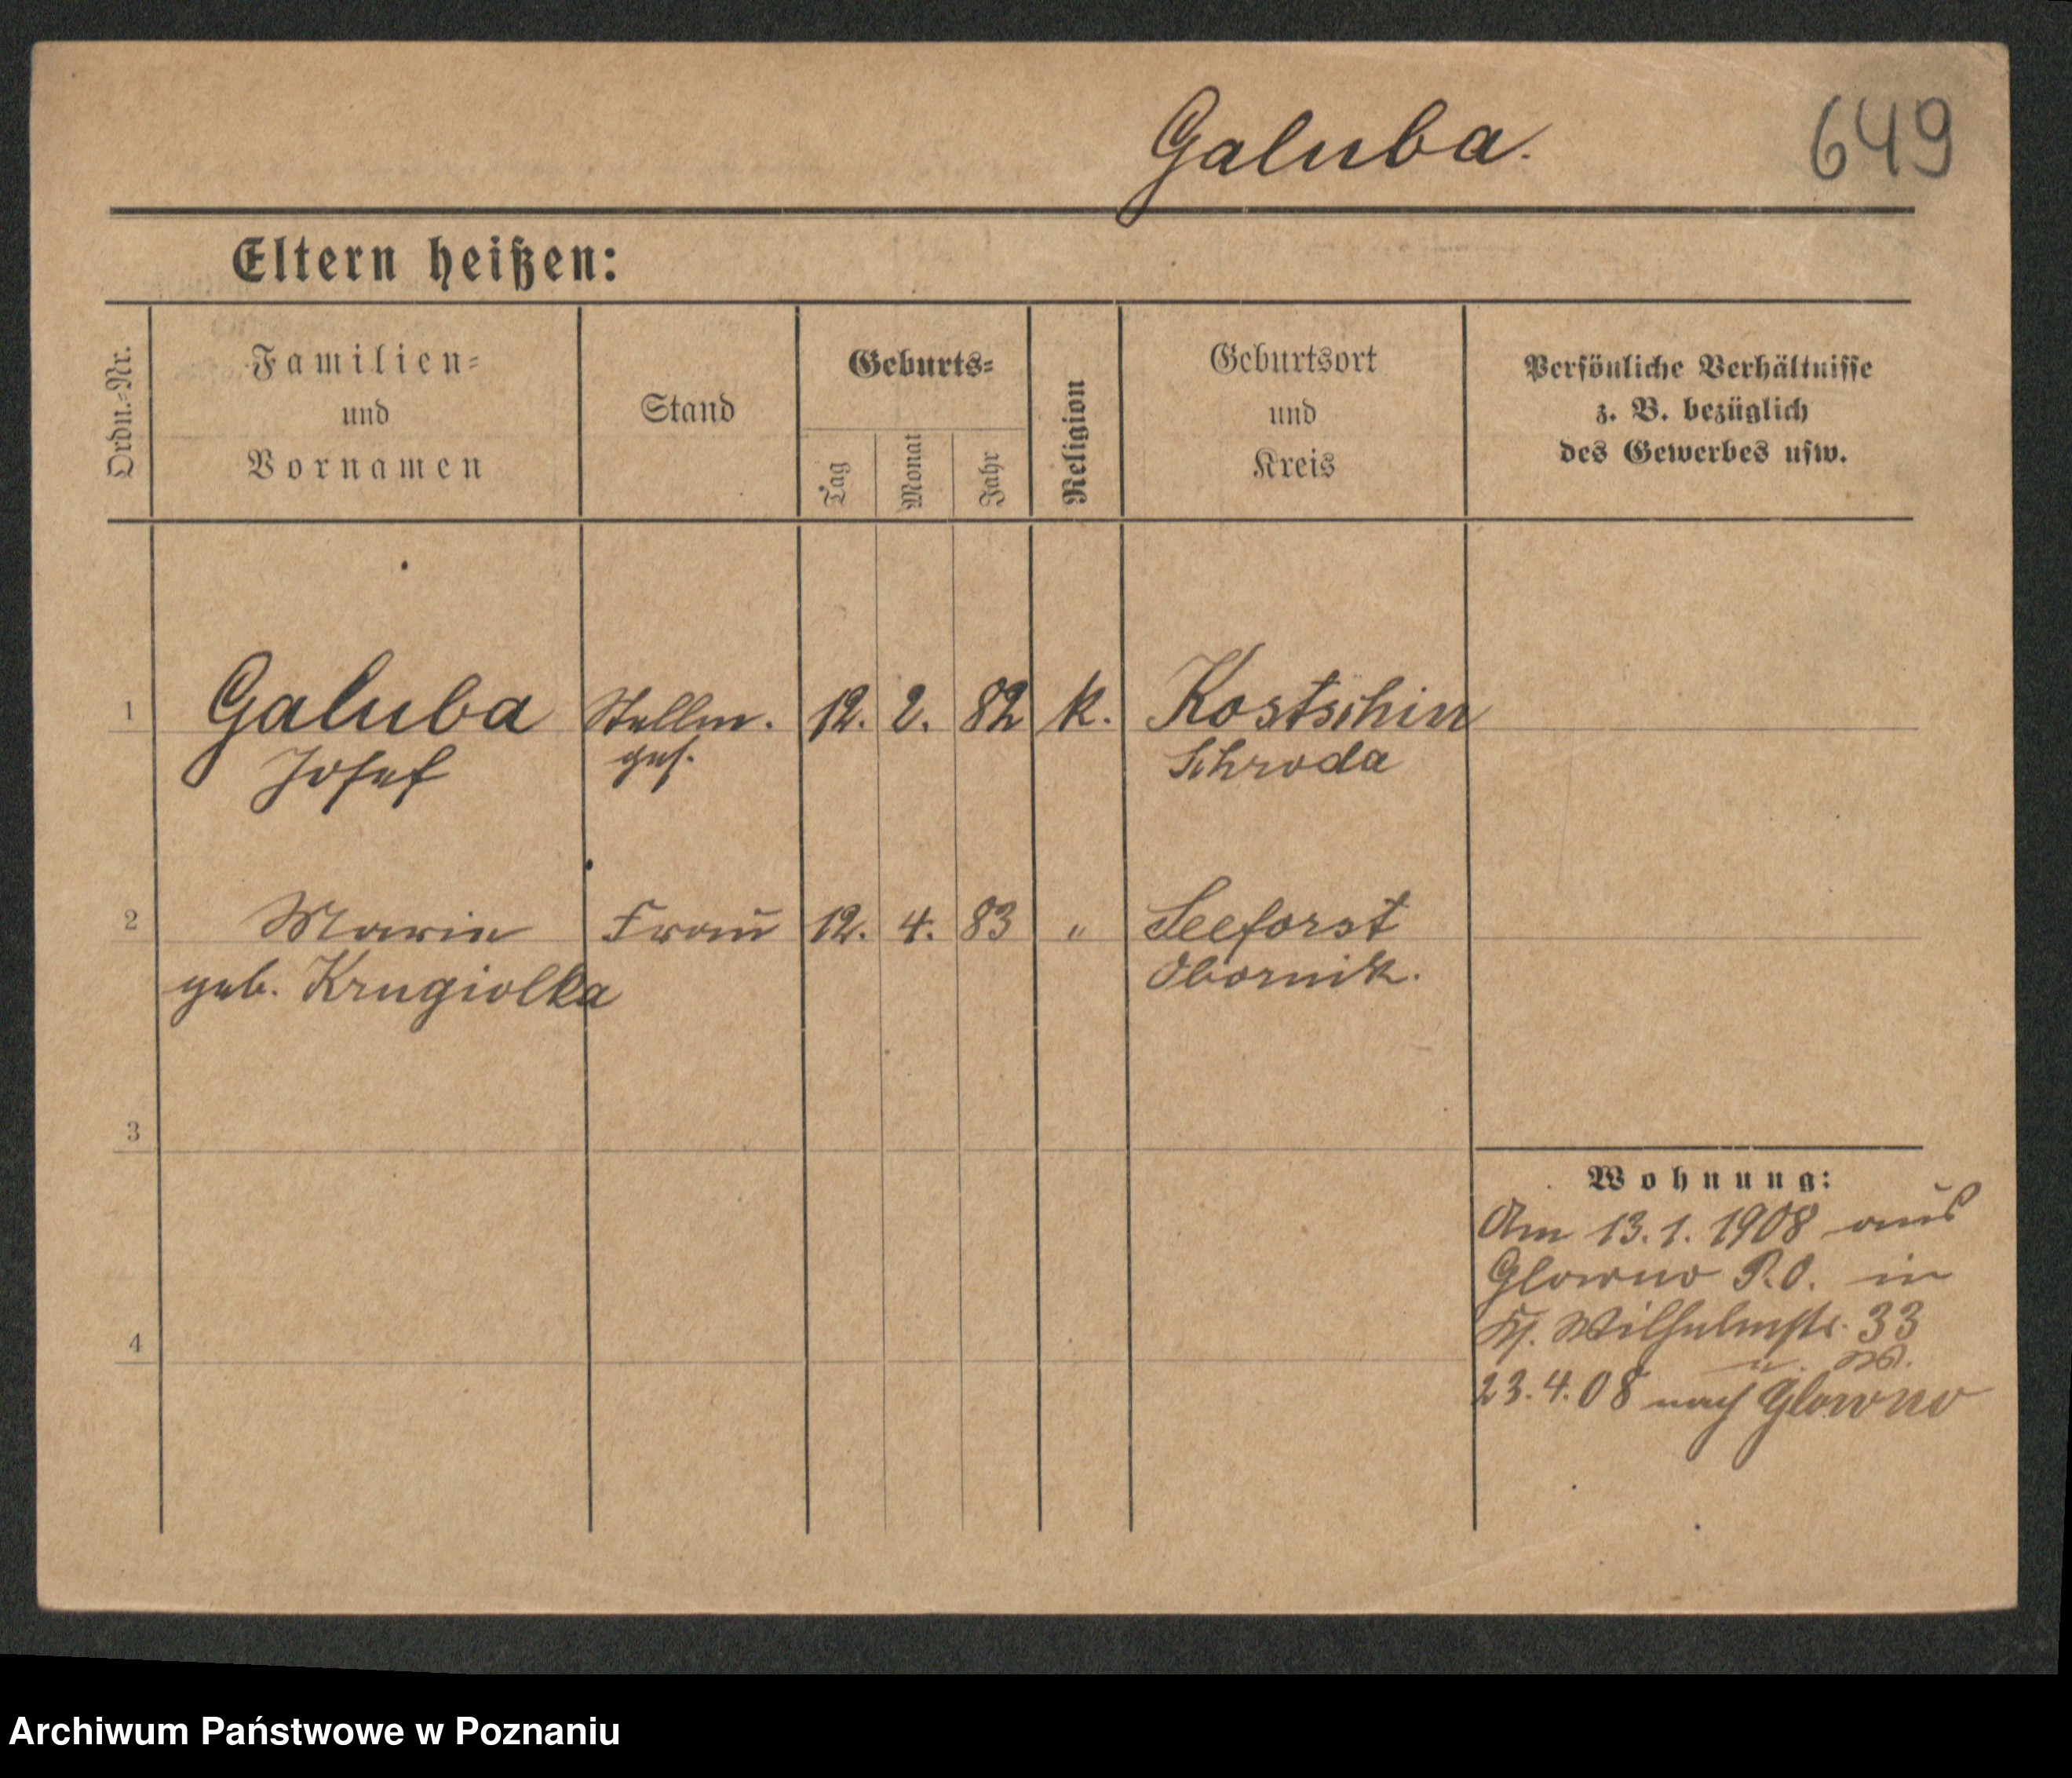 Galuba.
649
Eltern heißen:
Ordn.-Nr.
Familien-
und
Vornamen
Stand
Geburts-
Tag
Monat
Jahr
Religion
Geburtsort
und
Kreis
Persönliche Verhältnisse
z. B. bezüglich
des Gewerbes usw.
1 Galuba Stellm. 12. 2. 82 k. Kostschin
Josef ges. Schroda
2 Marie Frau 12. 4. 83 " Seeforst
geb. Krugiolka Obornik.
3
Wohnung:
Am 13.1.1908 aus
Glowno P.O. in
Wilhelmstr. 33
4
23.4.08 nach Glowno
Archiwum Państwowe w Poznaniu